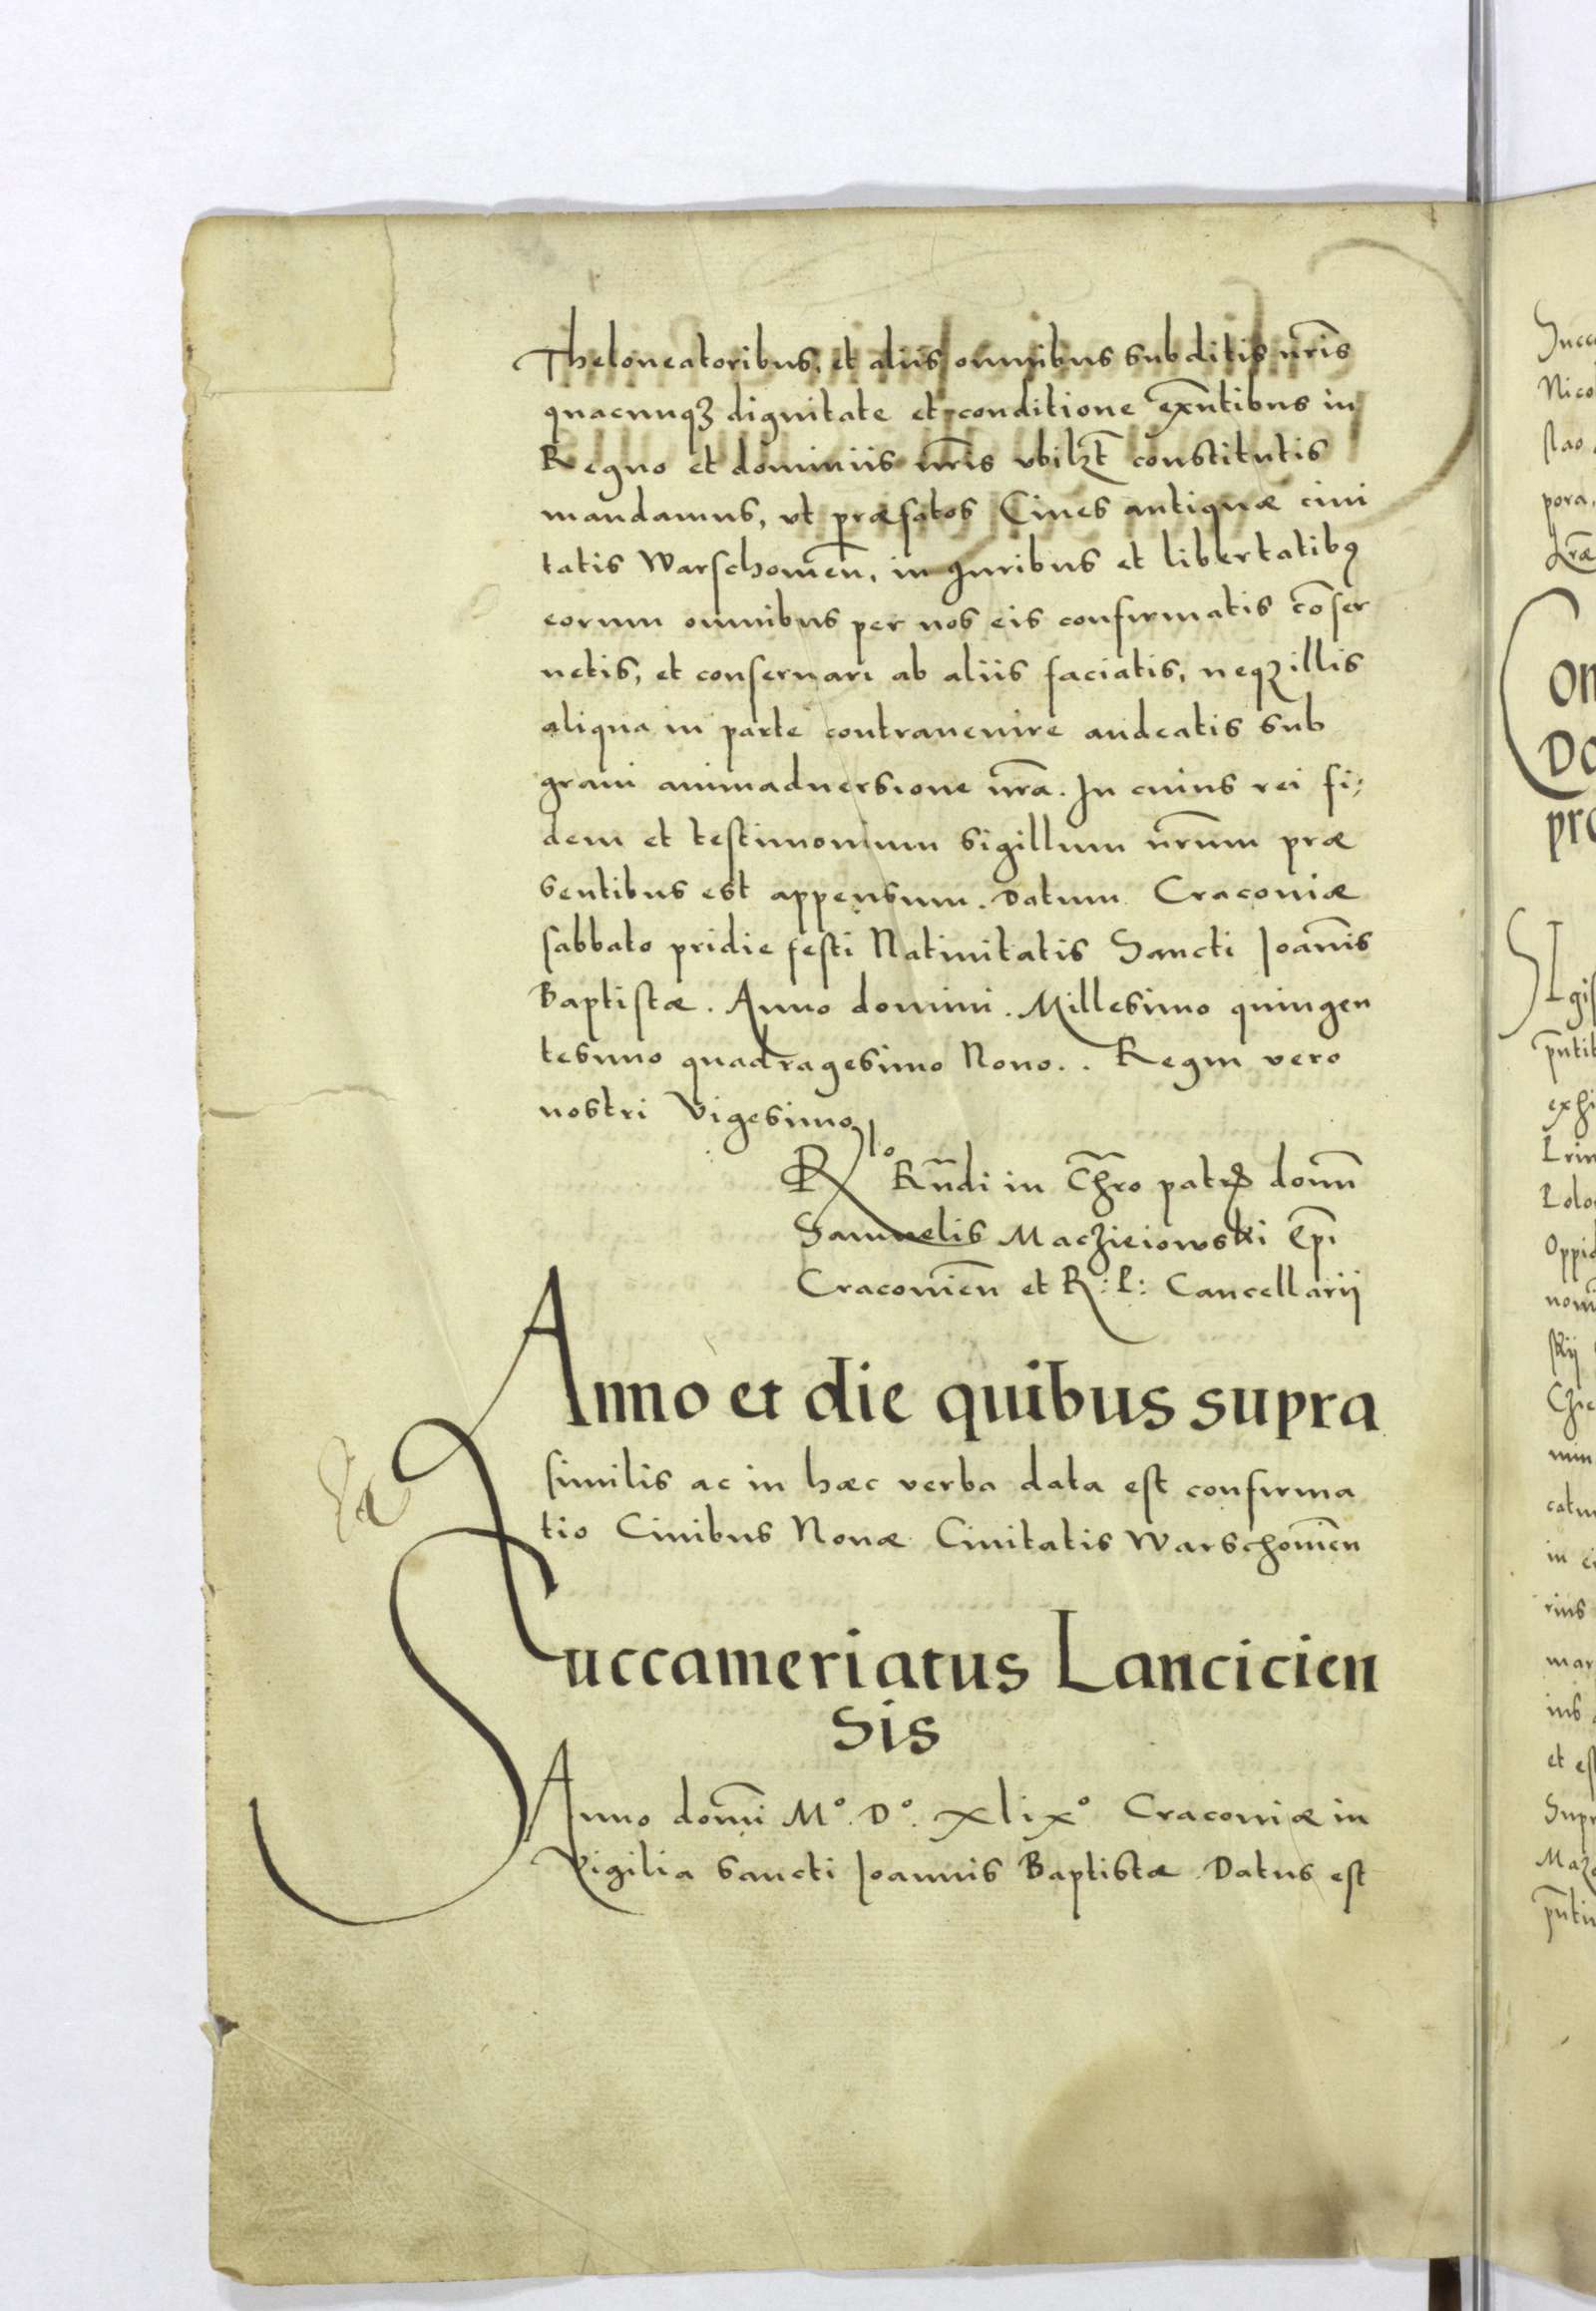 Theloneatoribus, et aliis omnibus subditis nr̃is
quacunqꝫ dignitate et conditione exñtibus in
Regno et dominiis nr̃is vbilꝫt constitutis
mandamus, vt præfatos Ciues antiquæ ciui
tatis Warschouień, in Iuribus et libertatibꝰ
eorum omnibus per nos eis confirmatis cõser
uetis, et conseruari ab aliis faciatis, neqꝫ illis
aliqua in parte contrauenire audeatis sub
graui animaduersione nr̃a. In cuius rei fi:
dem et testimonium sigillum nr̃um præ
sentibus est appensum. Datum Cracouiæ
sabbato pridie festi Natiuitatis Sancti Ioañis
Baptistæ. Anno domini. Millesimo quingen
tesimo quadragesimo Nono.. Regni vero
nostri Vigesimo
Rlº Rñdi in Chr̃o patris domñ
Samuelis Maczieiowski Ep̃i
Cracouień et R: P: Cancellarij
Anno et die quibus supra
similis ac in hæc verba data est confirma
tio Ciuibus Nouæ Ciuitatis Warschouień
Succameriatus Lancicien
sis
Anno domĩ Mº. Dº. xlixº Cracouiæ in
Vigilia Sancti Ioannis Baptistæ Datus est
Succa
Nico
pora.
pro
exhi
Polo
Oppid
Chie
in ci
rius
mar
ius
et es
Supr
Mazo